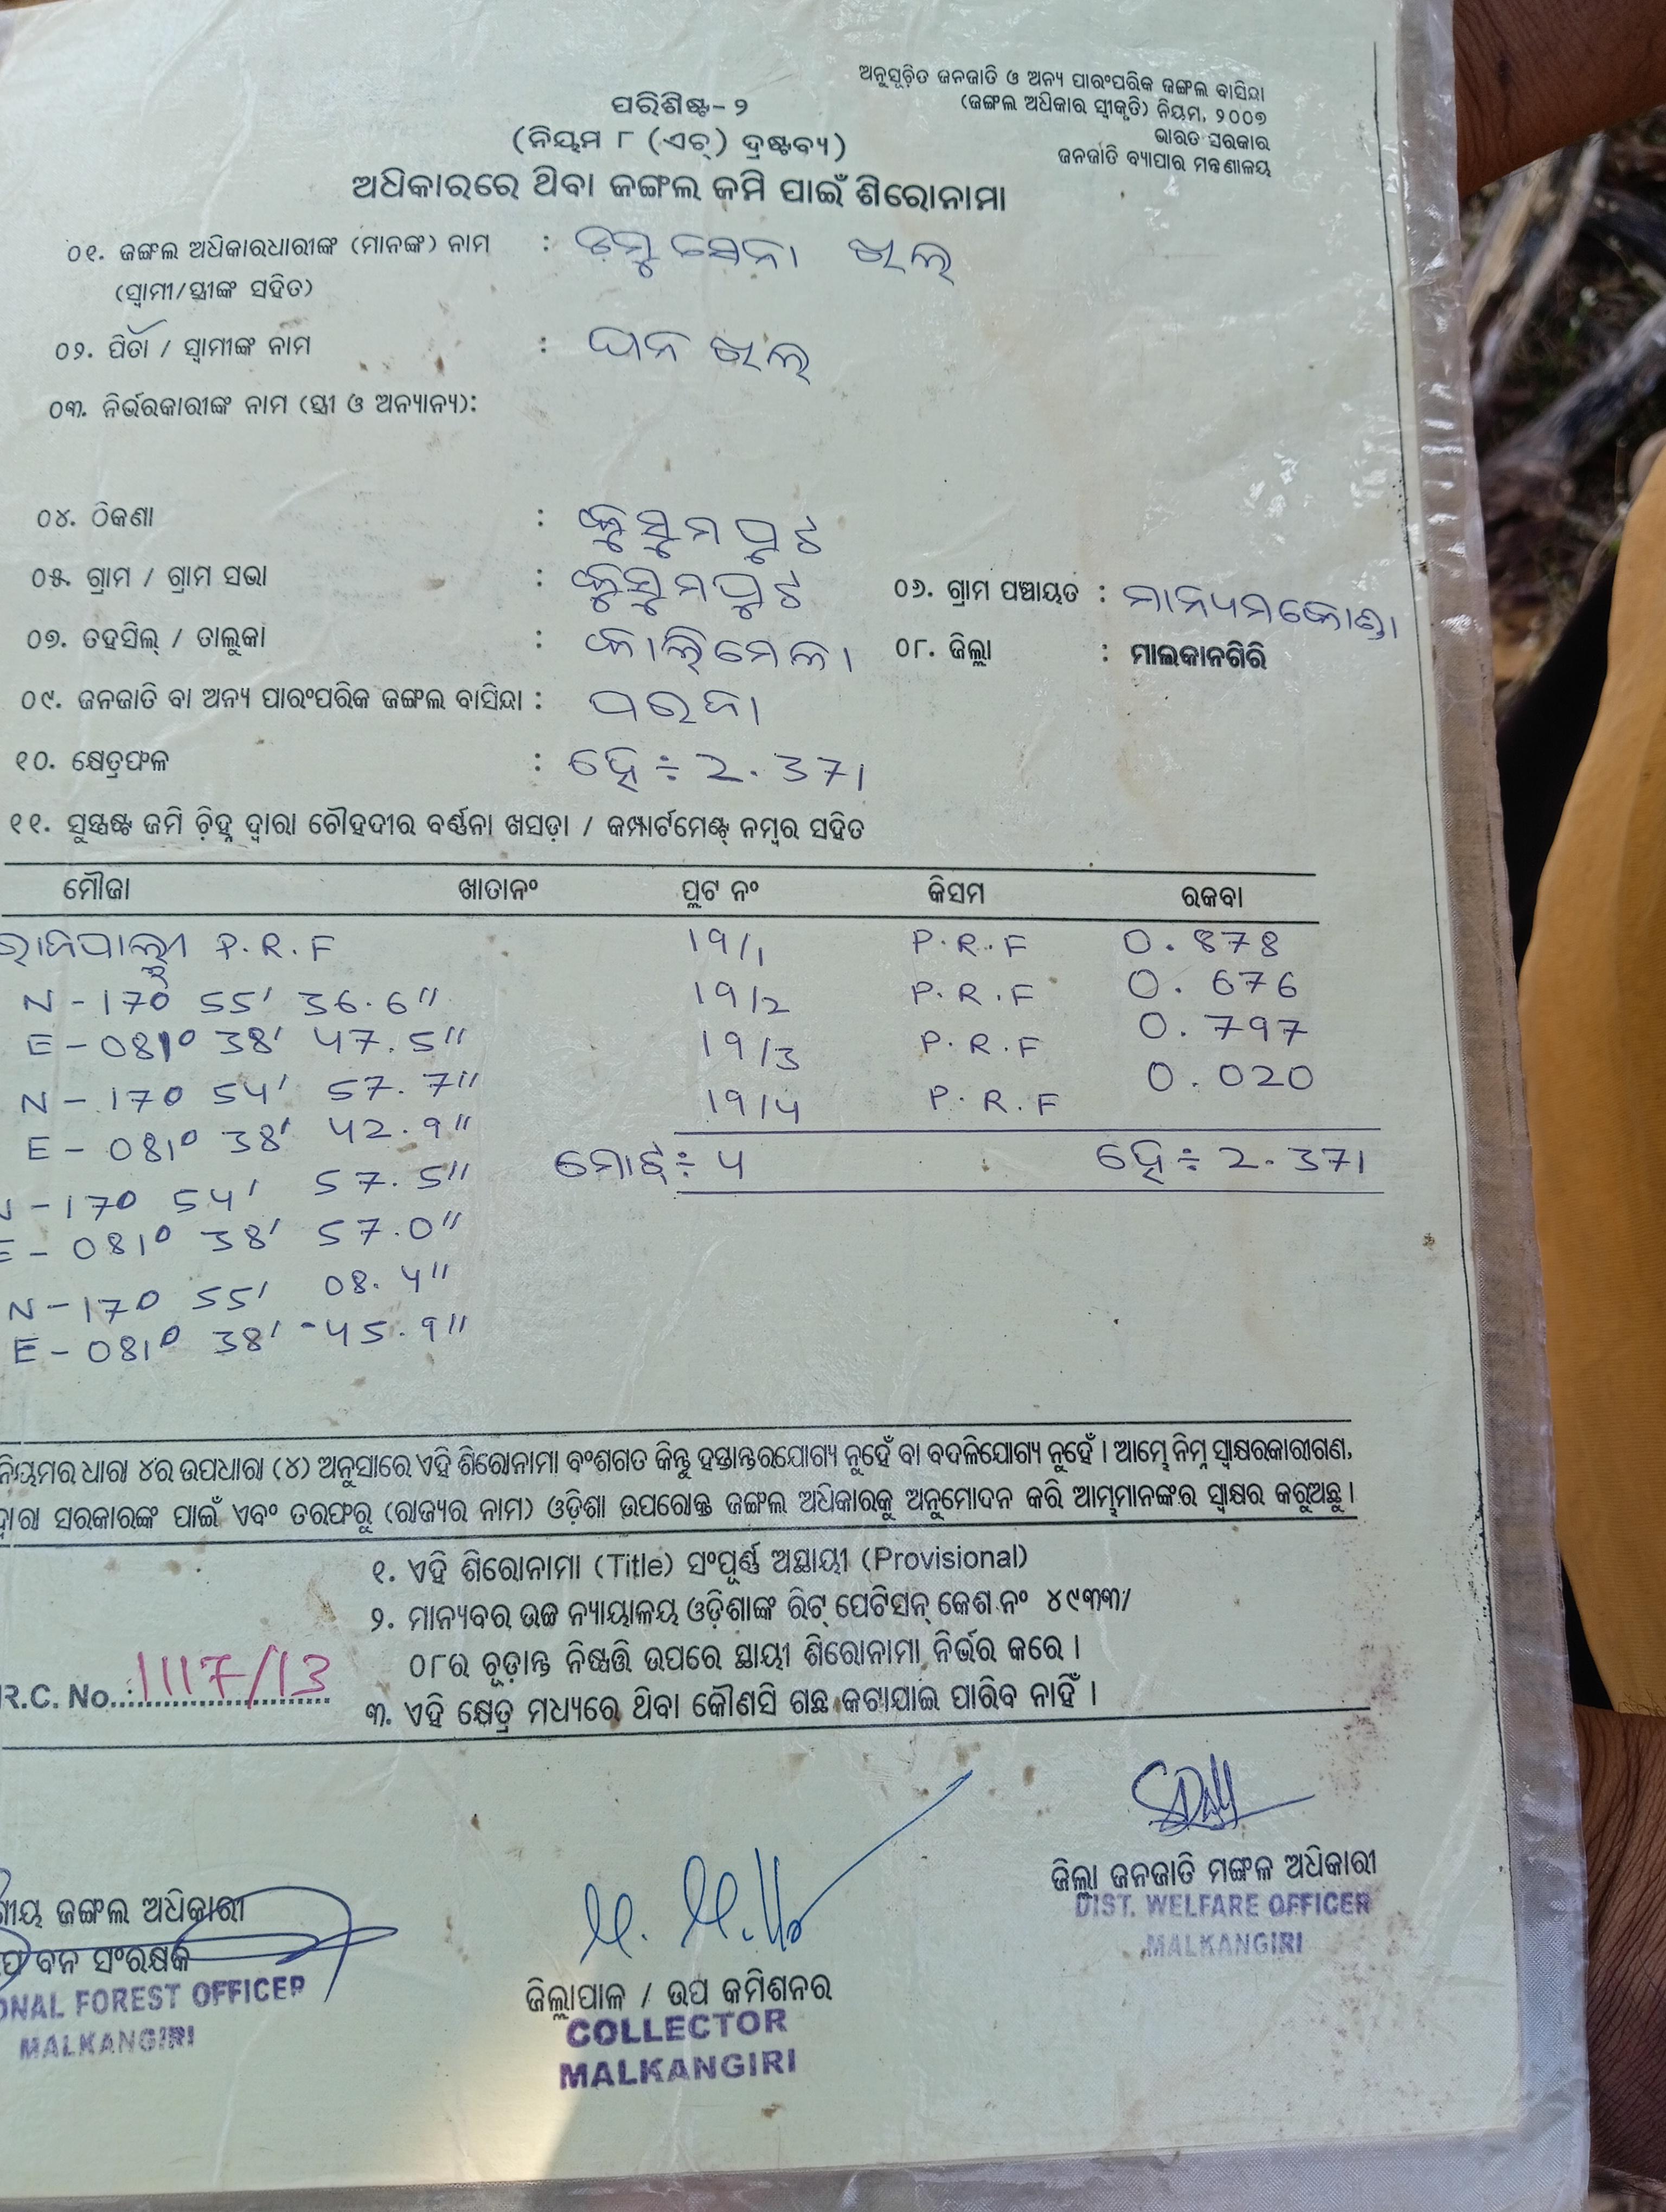 ଅନୁସୂଚିତ ଜନଜାତି ଓ ଅନ୍ୟ ପାରଂପରିକ ଜଙ୍ଗଲ ବାସିନ୍ଦା
(ଜଙ୍ଗଲ ଅଧିକାର ସ୍ୱୀକୃତି) ନିୟମ, ୨୦୦୭
ଭାରତ ସରକାର
ଜନଜାତି ବ୍ୟାପାର ମନ୍ତ୍ରଣାଳୟ
ପରିଶିଷ୍ଟ- ୨
(ନିୟମ ୮ (ଏଚ୍) ଦ୍ରଷ୍ଟବ୍ୟ)
ଅଧିକାରରେ ଥିବା ଜଙ୍ଗଲ ଜମି ପାଇଁ ଶିରୋନାମା
୦୧. ଜଙ୍ଗଲ ଅଧିକାରଧାରୀଙ୍କ (ମାନଙ୍କ) ନାମ :
(ସ୍ୱାମୀ/ସ୍ତ୍ରୀଙ୍କ ସହିତ)
୦୨. ପିତା / ସ୍ୱାମୀଙ୍କ ନାମ :
୦୩. ନିର୍ଭରକାରୀଙ୍କ ନାମ (ସ୍ତ୍ରୀ ଓ ଅନ୍ୟାନ୍ୟ):
୦୪. ଠିକଣା : କୁସୁମପୁଟ
୦୫. ଗ୍ରାମ / ଗ୍ରାମ ସଭା : କୁସୁମପୁଟ ୦୬. ଗ୍ରାମ ପଞ୍ଚାୟତ : ମାନ୍ୟମକୋଣ୍ଡା
୦୭. ତହସିଲ୍ / ତାଲୁକା : କାଲିମେଳା ୦୮. ଜିଲ୍ଲା : ମାଲକାନଗିରି
୦୯. ଜନଜାତି ବା ଅନ୍ୟ ପାରଂପରିକ ଜଙ୍ଗଲ ବାସିନ୍ଦା : ପରଜା
୧୦. କ୍ଷେତ୍ରଫଳ : ହେ ÷ 2.371
୧୧. ସୁସ୍ପଷ୍ଟ ଜମି ଚିହ୍ନ ଦ୍ୱାରା ଚୌହଦୀର ବର୍ଣ୍ଣନା ଖସଡ଼ା / କମ୍ପାର୍ଟମେଣ୍ଟ୍ ନମ୍ବର ସହିତ
ମୌଜା ଖାତାନଂ ପ୍ଲଟ ନଂ କିସମ ରକବା
P.R.F 19/1 P.R.F 0.878
N-17° 55' 36.6" 19/2 P.R.F 0.676
E-081° 38' 47.5" 19/3 P.R.F 0.797
N-17° 54' 57.7" 19/4 P.R.F 0.020
E-081° 38' 42.9"
ମୋଟ୍ ÷ 4 ହେ ÷ 2.371
N-17° 54' 57.5"
E-081° 38' 57.0"
N-17° 55' 08.4"
E-081° 38' 45.9"
ନିୟମର ଧାରା ୪ର ଉପଧାରା (୪) ଅନୁସାରେ ଏହି ଶିରୋନାମା ବଂଶଗତ କିନ୍ତୁ ହସ୍ତାନ୍ତରଯୋଗ୍ୟ ନୁହେଁ ବା ବଦଳିଯୋଗ୍ୟ ନୁହେଁ । ଆମ୍ଭେ ନିମ୍ନ ସ୍ୱାକ୍ଷରକାରୀଗଣ,
ଦ୍ୱାରା ସରକାରଙ୍କ ପାଇଁ ଏବଂ ତରଫରୁ (ରାଜ୍ୟର ନାମ) ଓଡ଼ିଶା ଉପରୋକ୍ତ ଜଙ୍ଗଲ ଅଧିକାରକୁ ଅନୁମୋଦନ କରି ଆମ୍ଭମାନଙ୍କର ସ୍ୱାକ୍ଷର କରୁଅଛୁ ।
୧. ଏହି ଶିରୋନାମା (Title) ସଂପୂର୍ଣ୍ଣ ଅସ୍ଥାୟୀ (Provisional)
୨. ମାନ୍ୟବର ଉଚ୍ଚ ନ୍ୟାୟାଳୟ ଓଡ଼ିଶାଙ୍କ ରିଟ୍ ପେଟିସନ୍ କେଶ ନଂ ୪୯୩୩/
୦୮ର ଚୂଡ଼ାନ୍ତ ନିଷ୍ପତ୍ତି ଉପରେ ସ୍ଥାୟୀ ଶିରୋନାମା ନିର୍ଭର କରେ ।
R.C. No. 1117/13
୩. ଏହି କ୍ଷେତ୍ର ମଧ୍ୟରେ ଥିବା କୌଣସି ଗଛ କଟାଯାଇ ପାରିବ ନାହିଁ ।
ଜିଲ୍ଲା ଜନଜାତି ମଙ୍ଗଳ ଅଧିକାରୀ
DIST. WELFARE OFFICER
MALKANGIRI
ଜଙ୍ଗଲ ଅଧିକାରୀ
ବନ ସଂରକ୍ଷକ
ONAL FOREST OFFICER
MALKANGIRI
ଜିଲ୍ଲାପାଳ / ଉପ କମିଶନର
COLLECTOR
MALKANGIRI